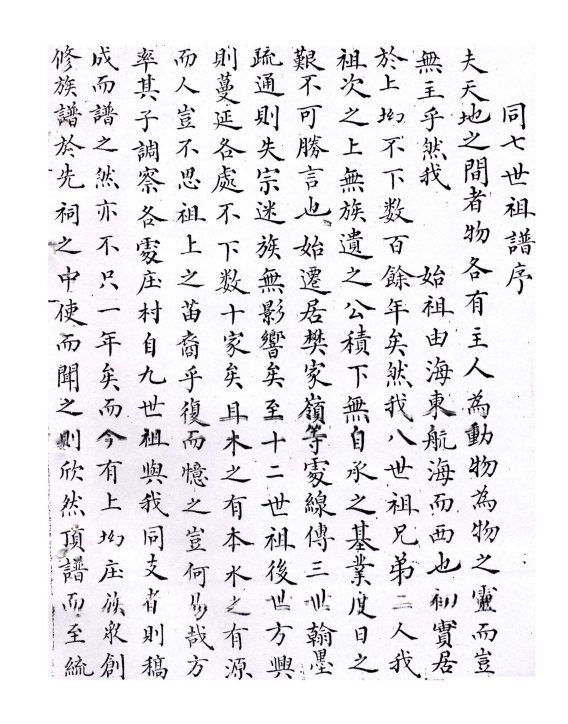 同七世祖譜序
夫天地之間者物各有主人為動物為物之靈而豈
無主乎然我　始祖由海東航海而西也初實居
於上坳不下数百餘年矣然我八世祖兄弟二人我
祖次之上無族遺之公積下無自承之基業度日之
艱不可勝言也始遷居樊家嶺等處線傳三世翰墨
疏通則失宗迷族無影響矣至十二世祖後世方興
則蔓延各處不下数十家矣且木之有本水之有源
而人豈不思祖上之苗裔乎復而憶之豈何易哉方
率其子調察各處庄村自九世祖與我同支者則稿
成而譜之然亦不只一年矣而今有上坳庄族衆創
修族譜於先祠之中使而聞之則欣然頂譜而至統